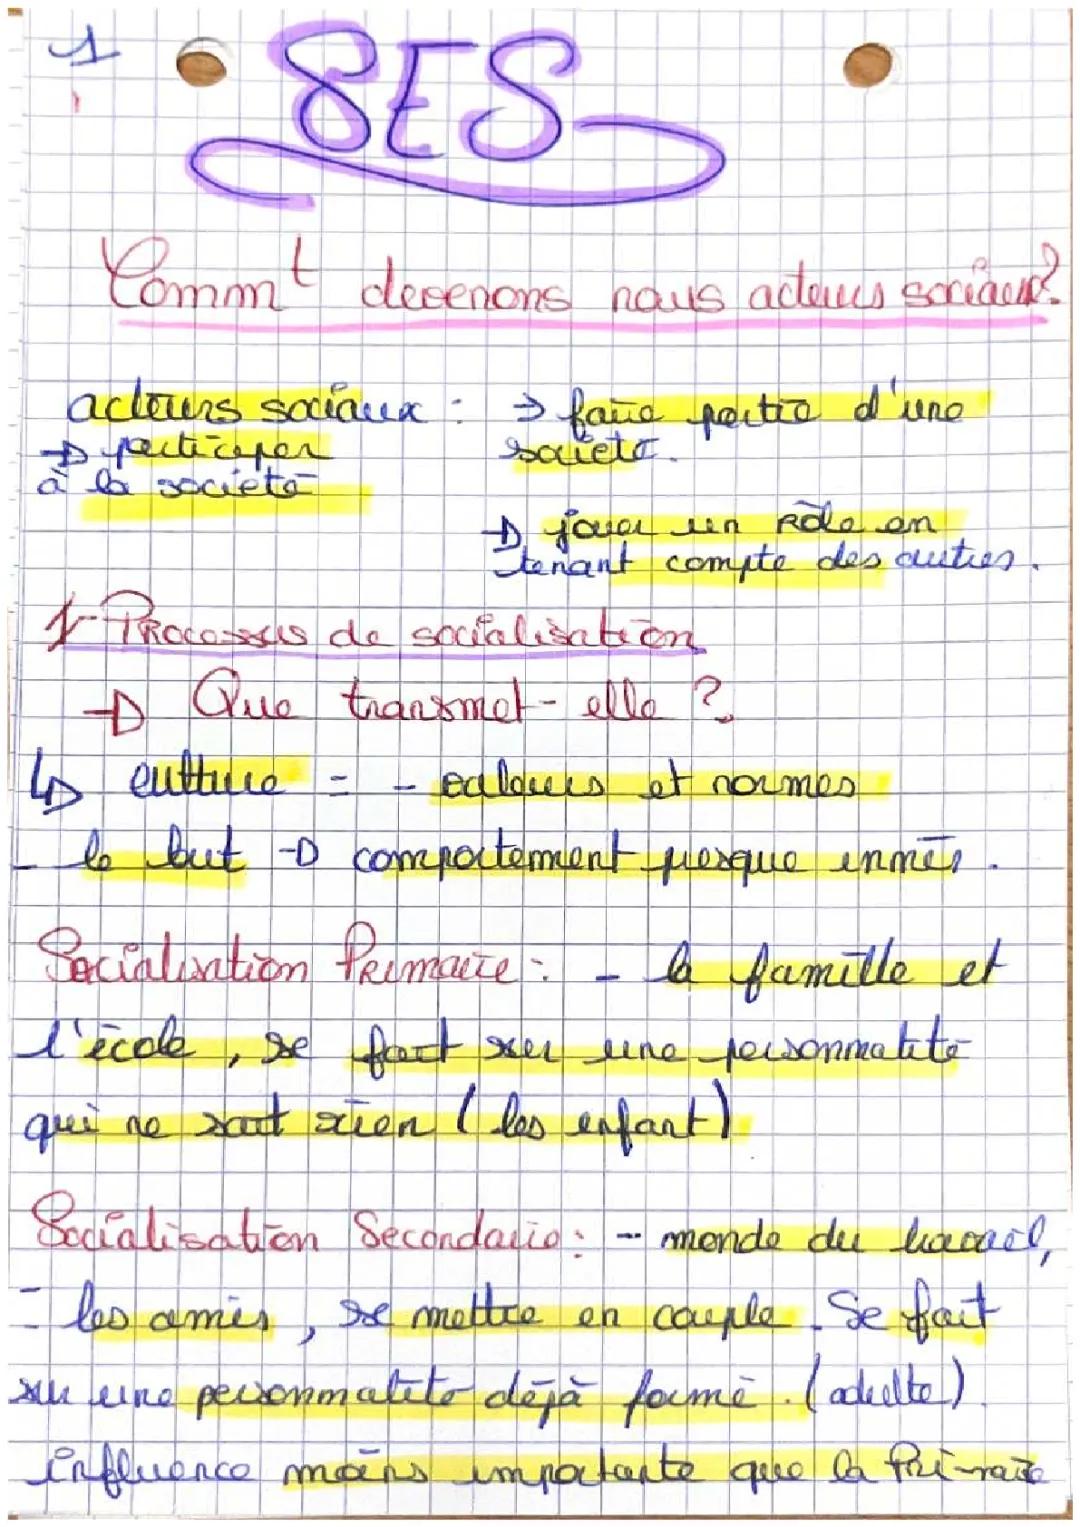 1
SES
Commt devenons nous acteurs sociaux?
acteurs sociaux : → faire partie d'une
→ participer societe.
à la société
→ jouer un Rôle en
tenant compte des autres.
1- Processus de socialisation
→ Que transmet-elle ?
↳ culture = - valeurs et normes
- le but → comportement presque innés.
Socialisation Primaire : - la famille et
l'école, se fait sur une personnalité
qui ne sait rien (les enfant)
Socialisation Secondaire : - monde du travail,
- les amis, se mettre en couple. Se fait
sur une personnalité déjà formé. (adulte).
influence moins importante que la Primaire